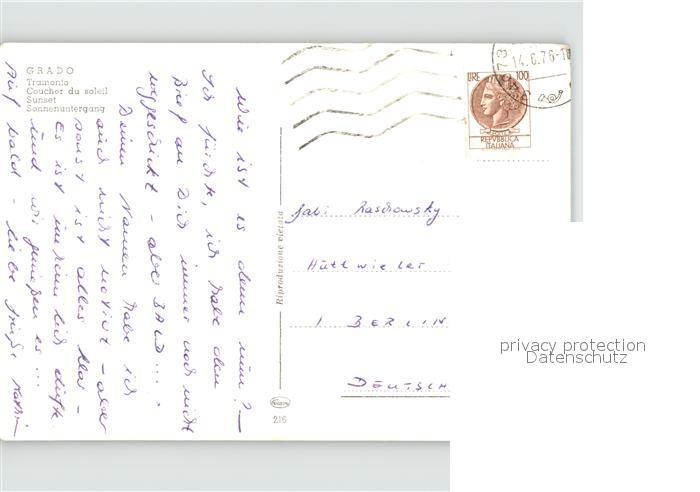 GRADO
Tramonto
Coucher du soleil
Sunset
Sonnenuntergang
Wie ist es denn nun? –
Ich fürchte, ich habe den
Brief an Dich immer noch nicht
weggeschickt – aber BALD....
Deinen Namen habe ich
auch nicht notiert – aber
sonst ist alles klar –
Es ist
und wir genießen es...
Auf bald – liebe Grüße
Riproduzione vietata
216
LIRE 100
REPVBBLICA
ITALIANA
14.6.76-18
Gabi Raschowsky
Hüttwieler
1 BERLIN
DEUTSCH
privacy protection
Datenschutz